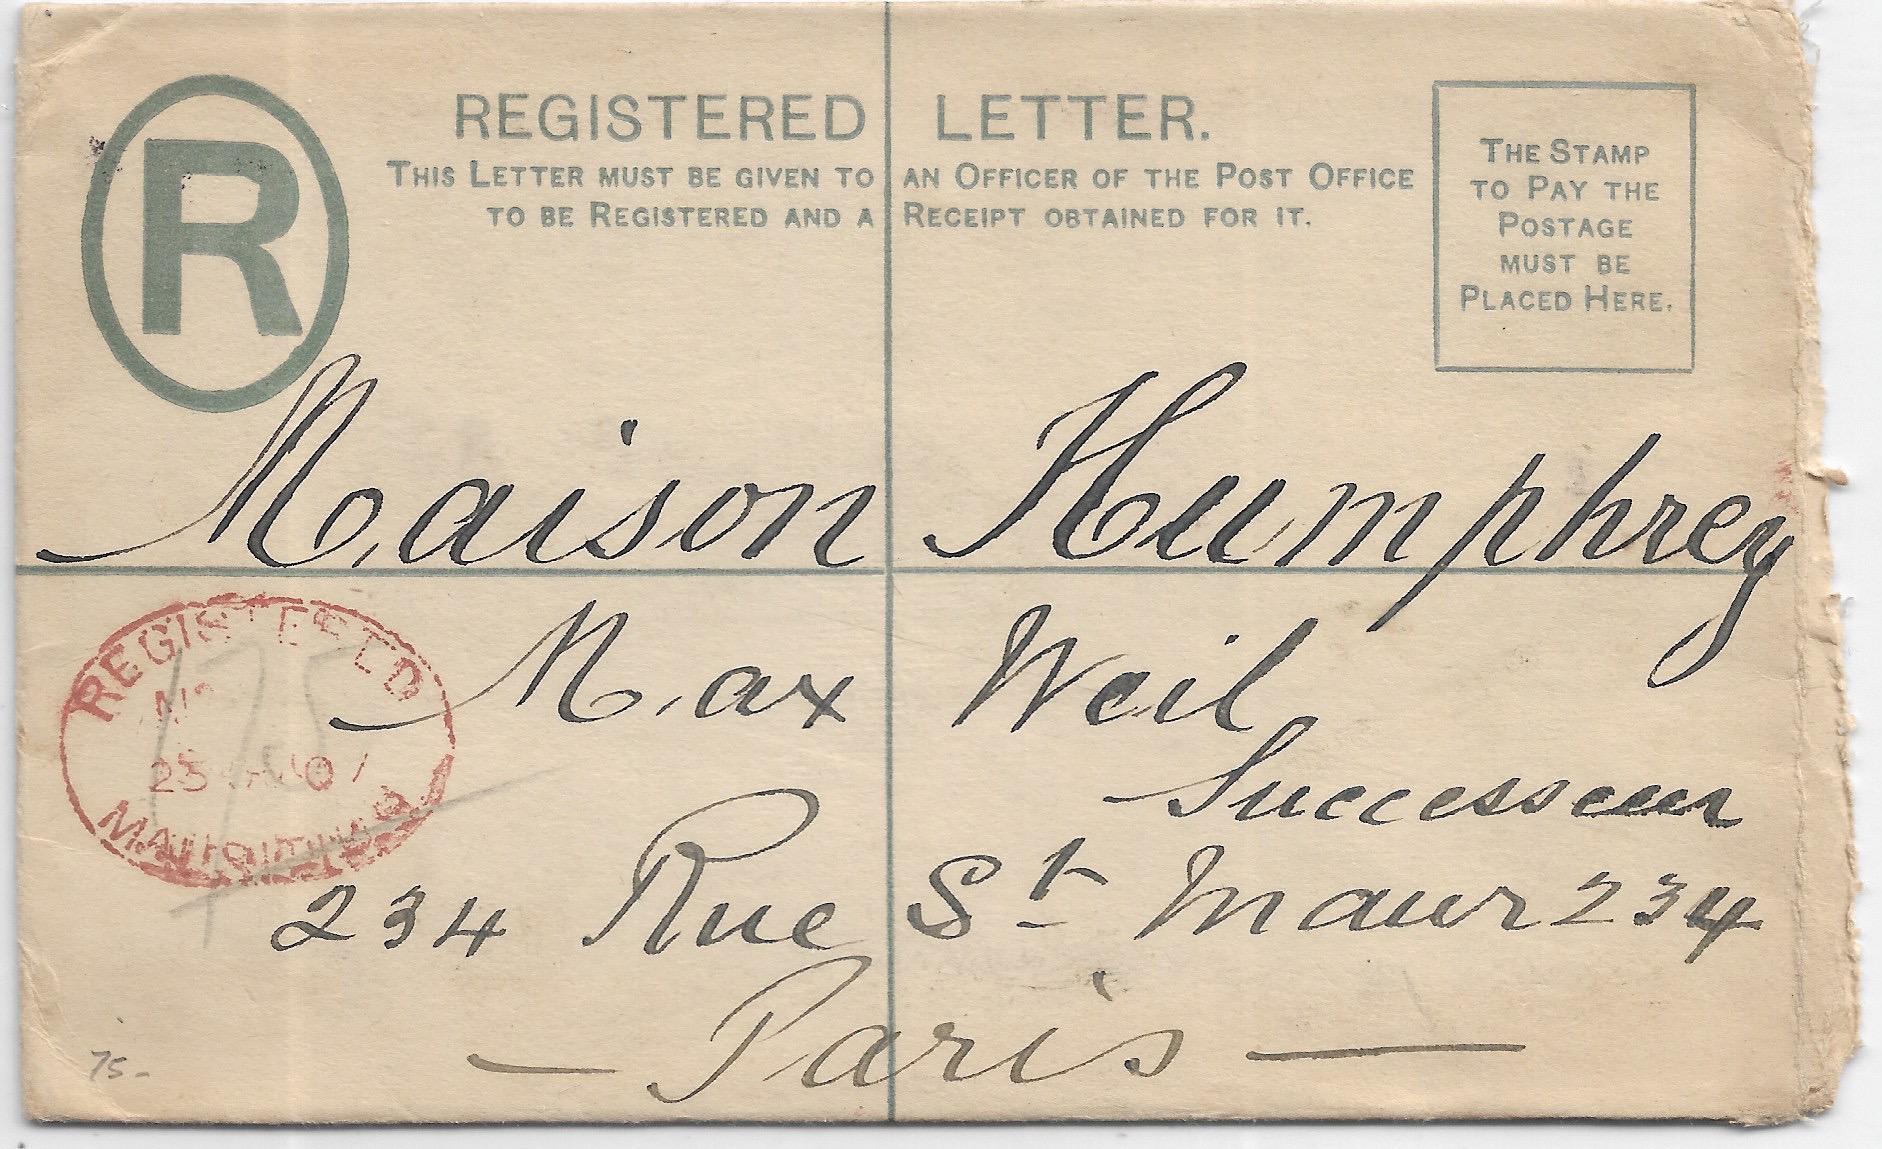 R
REGISTERED LETTER.
THIS LETTER MUST BE GIVEN TO AN OFFICER OF THE POST OFFICE
TO BE REGISTERED AND A RECEIPT OBTAINED FOR IT.
THE STAMP
TO PAY THE
POSTAGE
MUST BE
PLACED HERE.
Maison Humphrey
Max Weil
Successeur
234 Rue St Maur 234
— Paris —
REGISTERED
175
75-